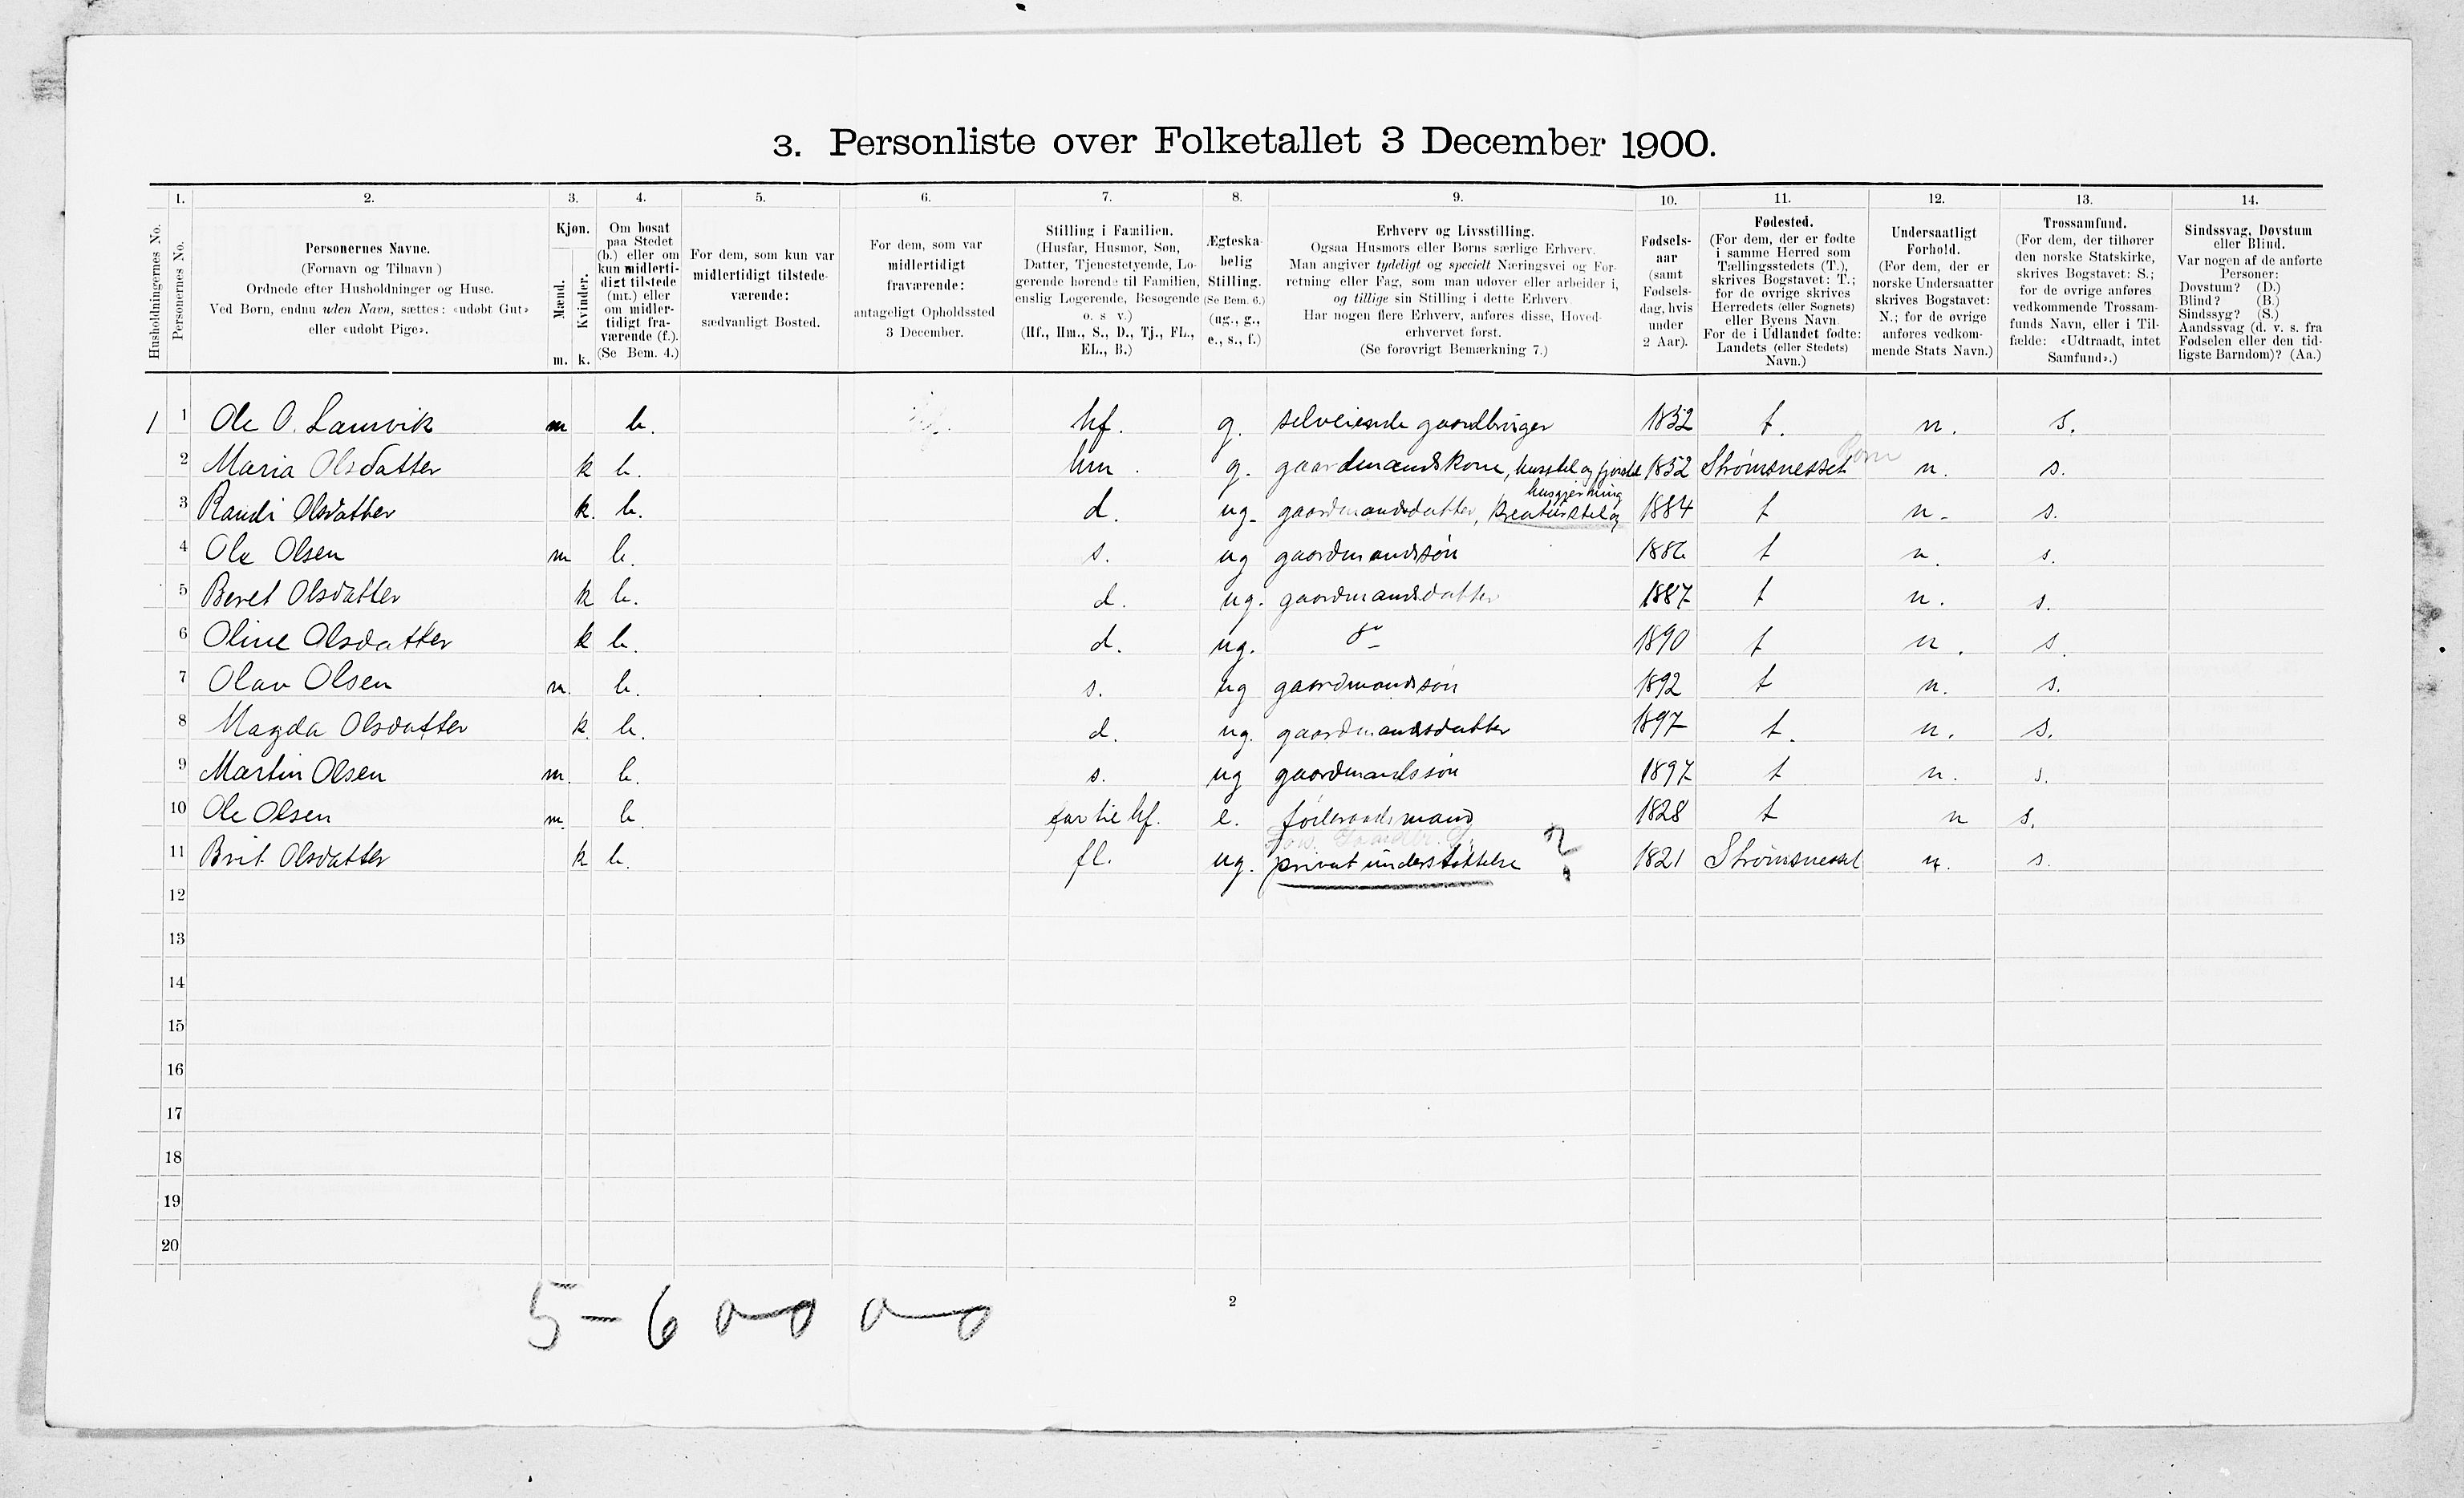 3. Personliste over Folketallet 3 December 1900.
1. 2. 3. 4. 5. 6. 7. 8. 9. 10. 11. 12. 13. 14.
Husholdningernes No.
Personernes No.
Personernes Navne.
(Fornavn og Tilnavn)
Ordnede efter Husholdninger og Huse.
Ved Børn, endnu uden Navn, sættes: «udøbt Gut»
eller «udøbt Pige».
Kjøn.
Mænd.
Kvinder.
m. k.
Om bosat
paa Stedet
(b.) eller om
kun midlerti-
digt tilstede
(mt.) eller
om midler-
tidigt fra-
værende (f.).
(Se Bem. 4.)
For dem, som kun var
midlertidigt tilstede-
værende:
sædvanligt Bosted.
For dem, som var
midlertidigt
fraværende:
antageligt Opholdssted
3 December.
Stilling i Familien.
(Husfar, Husmor, Søn,
Datter, Tjenestetyende, Lo-
gerende hørende til Familien,
enslig Logerende, Besøgende
o. s v.)
(Hf., Hm., S., D., Tj., FL.,
EL., B.)
Ægteska-
belig
Stilling.
(Se Bem. 6.)
(ug., g.,
e., s., f.)
Erhverv og Livsstilling.
Ogsaa Husmors eller Børns særlige Erhverv.
Man angiver tydeligt og specielt Næringsvei og For-
retning eller Fag, som man udøver eller arbeider i,
og tillige sin Stilling i dette Erhverv.
Har nogen flere Erhverv, anføres disse, Hoved-
erhvervet først.
(Se forøvrigt Bemærkning 7.)
Fødsels-
aar
(samt
Fødsels-
dag, hvis
under
2 Aar).
Fødested.
(For dem, der er fødte
i samme Herred som
Tællingsstedets (T.),
skrives Bogstavet: T.;
for de øvrige skrives
Herredets (eller Sognets)
eller Byens Navn.
For de i Udlandet fødte:
Landets (eller Stedets)
Navn.)
Undersaatligt
Forhold.
(For dem, der er
norske Undersaatter
skrives Bogstavet:
N.; for de øvrige
anføres vedkom-
mende Stats Navn.)
Trossamfund.
(For dem, der tilhører
den norske Statskirke,
skrives Bogstavet: S.;
for de øvrige anføres
vedkommende Trossam-
funds Navn, eller i Til-
fælde: «Udtraadt, intet
Samfund».)
Sindssvag, Døvstum
eller Blind.
Var nogen af de anførte
Personer:
Døvstum? (D.)
Blind? (B.)
Sindssyg? (S.)
Aandssvag (d. v. s. fra
Fødselen eller den tid-
ligste Barndom)? (Aa.)
1 1 Ole O. Lamvik m b. hf. g. selveiende gaardbruger 1852 t. n. s.
2 Maria Olsdatter k b. hm. g. gaardmandskone, husstel og fjøsstel 1852 Strømsnesset n. s.
husgjerning
3 Randi Olsdatter k. b. d. ug. gaardmandsdatter, Kreaturstel og 1884 t n. s.
4 Ole Olsen m b. s. ug gaardmandssøn 1886 t n. s.
5 Beret Olsdatter k b. d. ug. gaardmandsdatter 1887 t n. s.
6 Oline Olsdatter k b. d. ug. do 1890 t n. s.
7 Olav Olsen m. b. s. ug gaardmandssøn 1892 t n. s.
8 Magda Olsdatter k. b. d. ug. gaardmandsdatter 1897 t. n. s.
9 Martin Olsen m. b. s. ug gaardmandssøn 1897 t n. s.
10 Ole Olsen m. b. far til hf. e. føderaadsmand 1828 t n s.
11 Brit Olsdatter k b. fl. ug. privat understøttelse ? 1821 Strømsnesset n. s.
12
13
14
15
16
17
18
19
20
5-6
2